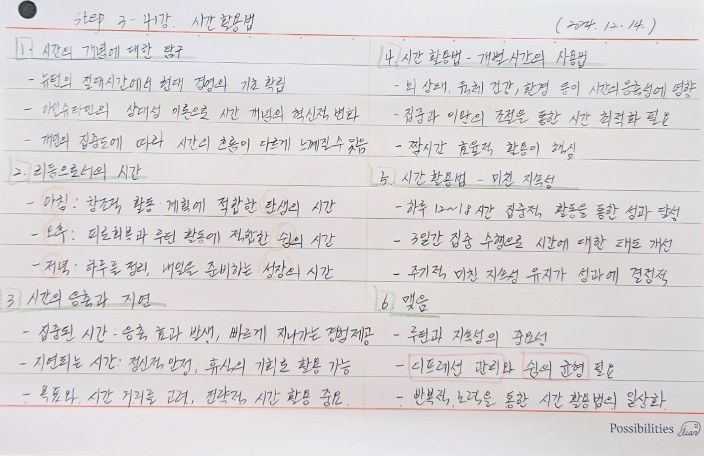 step 3-41강. 시간 활용법
(2024.12.14.)
1. 시간의 개념에 대한 탐구
- 뉴턴의 절대시간에서 현대 경영의 기초 확립
- 아인슈타인의 상대성 이론으로 시간 개념의 혁신적 변화
- 개인의 집중도에 따라 시간의 흐름이 다르게 느껴질 수 있음
2. 리듬으로서의 시간
- 아침: 창조적 활동 계획에 적합한 탄생의 시간
- 오후: 피로회복과 루틴 활동에 적합한 쉼의 시간
- 저녁: 하루를 정리, 내일을 준비하는 성장의 시간
3 시간의 응축과 지연
- 집중된 시간: 응축 효과 발생, 빠르게 지나가는 경험 제공
- 지연되는 시간: 정신적 안정, 휴식의 기회로 활용 가능
- 목표와 시간 거리를 고려, 전략적 시간 활용 중요.
4. 시간 활용법 - 개별 시간의 사용법
- 뇌 상태, 육체 건강, 환경 등이 시간의 응축성에 영향
- 집중과 이완의 조절을 통한 시간 최적화 필요
- 짬시간 효율적 활용이 핵심
5. 시간 활용법 - 미친 지속성
- 하루 12~18시간 집중적 활동을 통한 성과 달성
- 3일간 집중 수행으로 시간에 대한 태도 개선
- 주기적 미친 지속성 유지가 성과에 결정적
6. 맺음
- 루틴과 지속성의 중요성
- 디프레션 관리와 쉼의 균형 필요
- 반복적 노력을 통한 시간 활용법의 일상화
Possibilities